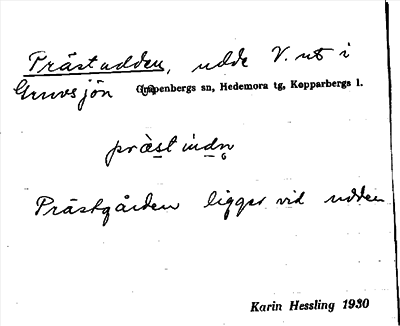 Prästudden, udde V. ut i
Gruvsjön Garpenbergs sn, Hedemora tg, Kopparbergs l.
Prästgården ligger vid udden
Karin Hessling 1930